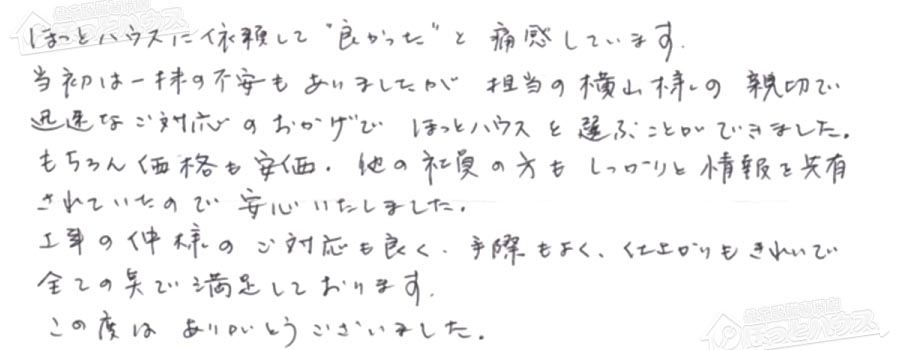 ほっとハウスに依頼して"良かった"と痛感しています.
当初は一抹の不安もありましたが 担当の横山様の 親切で
迅速なご対応のおかげで ほっとハウスを選ぶことができました.
もちろん価格も安価. 他の社員の方もしっかりと情報を共有
されていたので 安心いたしました.
工事の仲様のご対応も良く、手際もよく、仕上がりもきれいで
全ての点で満足しております.
この度は ありがとうございました.
ほっとハウス
ほっとハウス